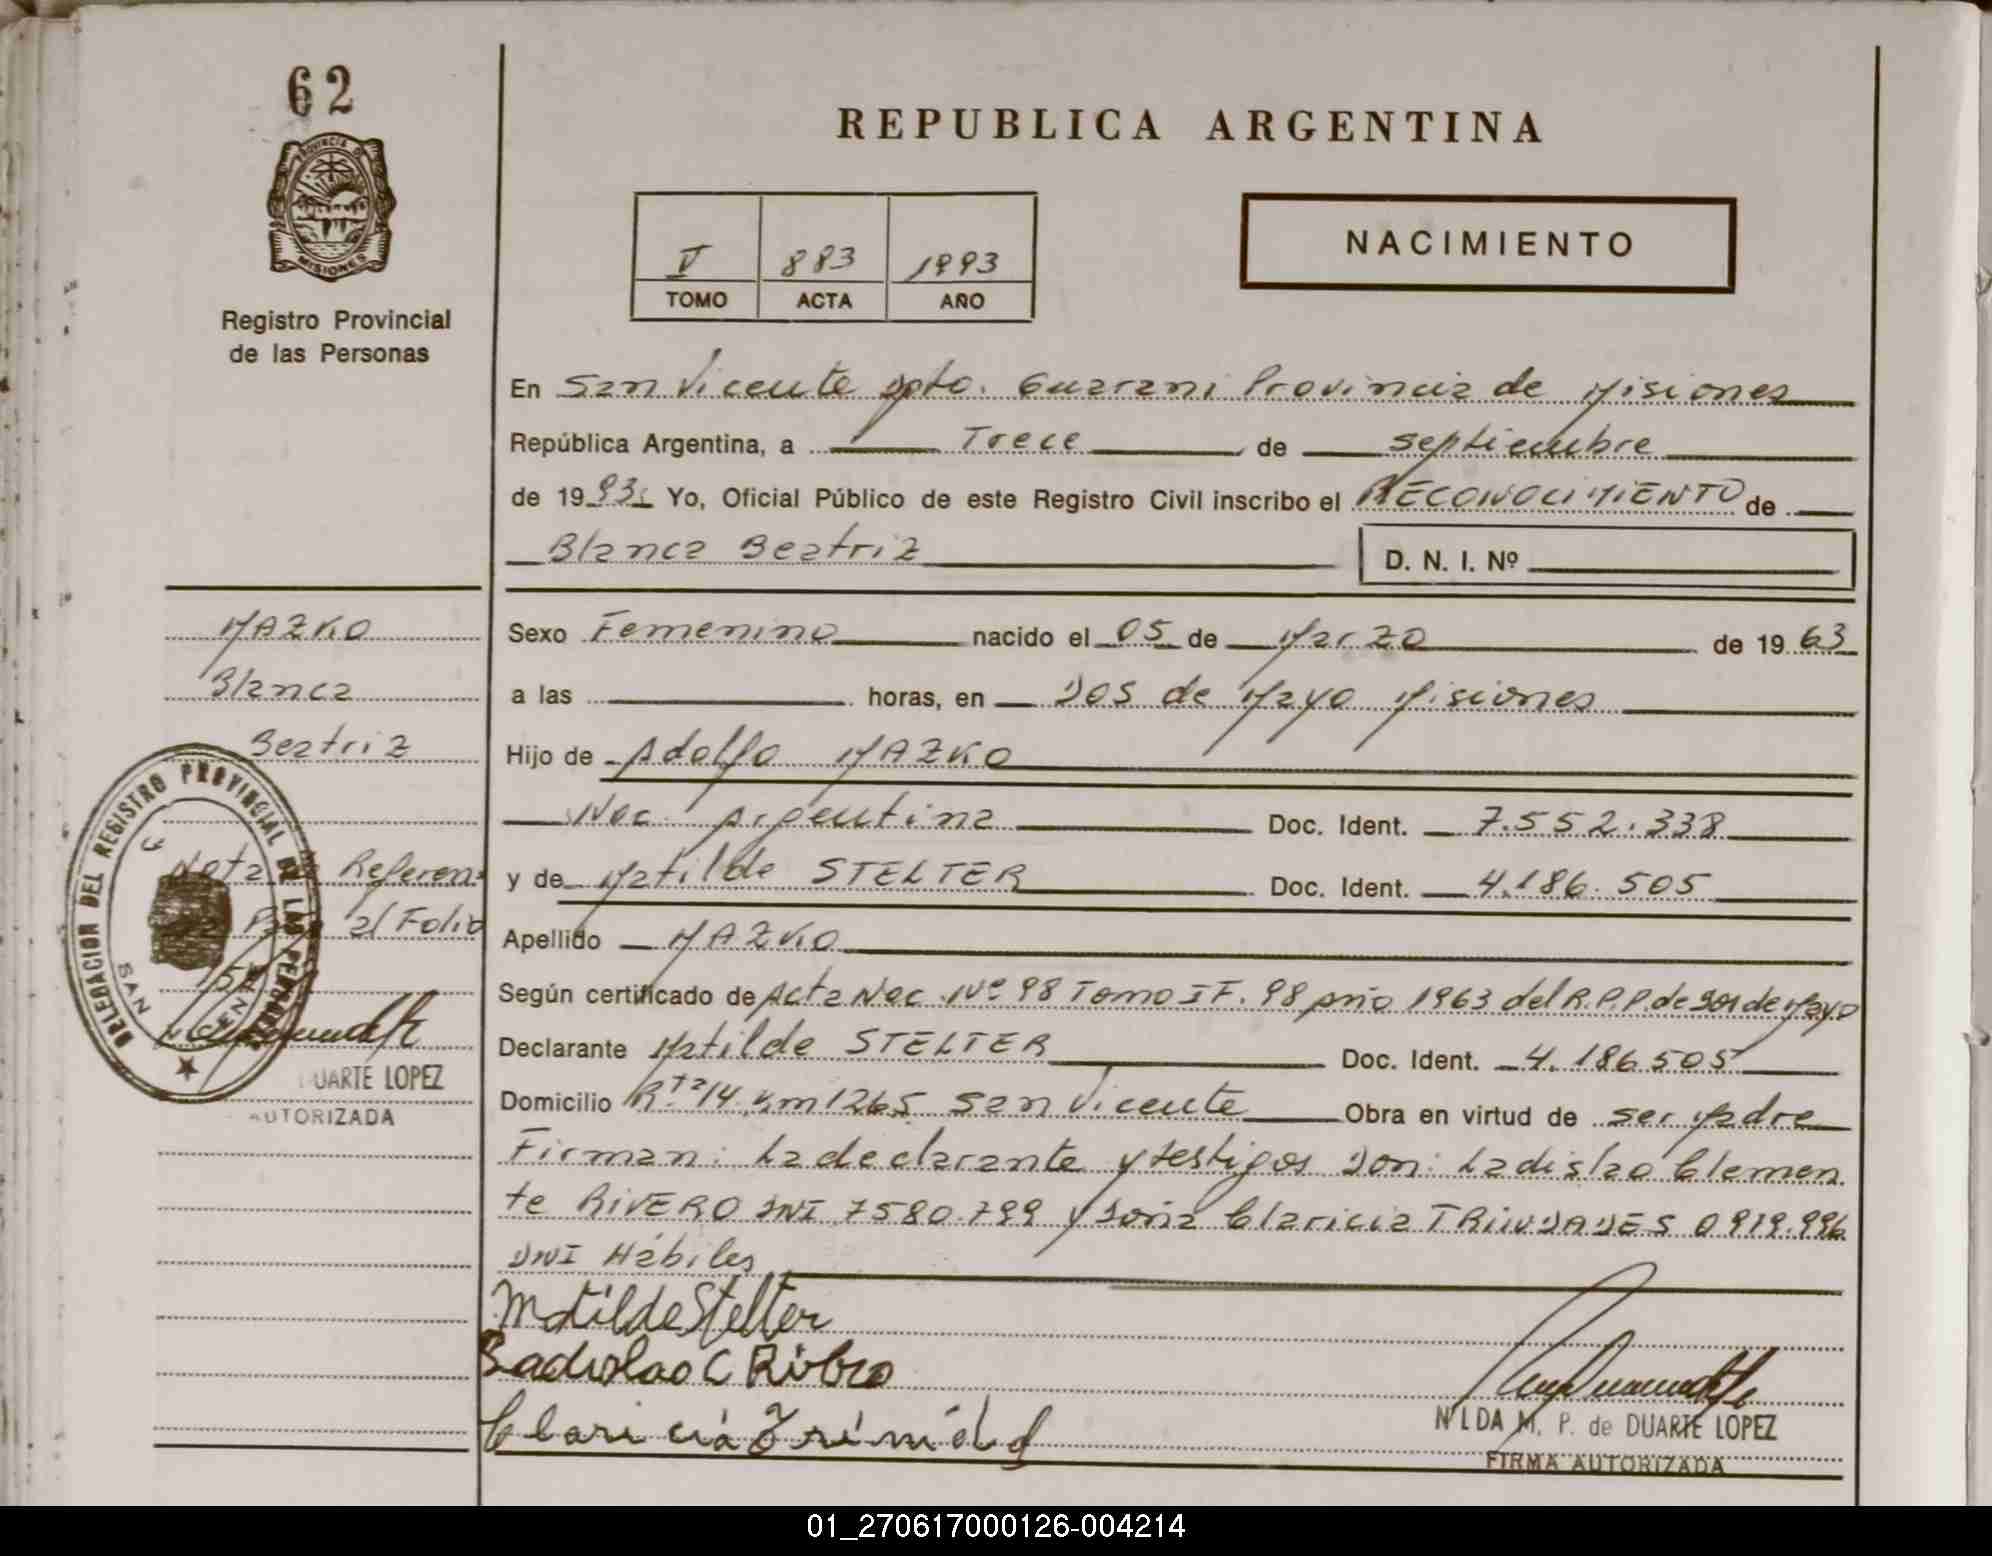 62
PROVINCIA DE
MISIONES
Registro Provincial
de las Personas
REPUBLICA ARGENTINA
V 883 1993
TOMO ACTA AÑO
NACIMIENTO
En San Vicente Dpto. Guarani Provincia de Misiones
República Argentina, a Trece de septiembre
de 1993 Yo, Oficial Público de este Registro Civil inscribo el RECONOCIMIENTO de
Blanca Beatriz D. N. I. Nº
MAZKO
Blanca
Beatriz
Nota de Referen
Pasa al Folio
DELEGACION DEL REGISTRO PROVINCIAL DE LAS PERSONAS
SAN
DUARTE LOPEZ
AUTORIZADA
Sexo Femenino nacido el 05 de Marzo de 1963
a las horas, en Dos de Mayo Misiones
Hijo de Adolfo MAZKO
Nac. Argentina Doc. Ident. 7.552.338
y de Matilde STELTER Doc. Ident. 4.186.505
Apellido MAZKO
Según certificado de Acta Nac. Nº 98 Tomo I F. 98 Año 1963 del R.P.P. de Dos de Mayo
Declarante Matilde STELTER Doc. Ident. 4.186505
Domicilio Rta 14 Km 1265 San Vicente Obra en virtud de ser Madre
Firman: La declarante y testigos Don: Ladislao Clemen
te RIVERO DNI 7580.799 y Doña Claricia TRINDADES 0919.996
DNI Hábiles
Matilde Stelter
Ladislao C Ribero
Claricia
NILDA M. P. de DUARTE LOPEZ
FIRMA AUTORIZADA
01_270617000126-004214